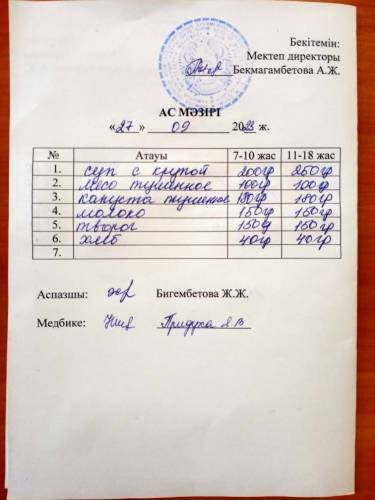 Бекітемін:
Мектеп директоры
Бекмагамбетова А.Ж.
АС МӘЗІРІ
«27» 09 2023 ж.
№ Атауы 7-10 жас 11-18 жас
1. суп с крупой 200гр 250гр
2. мясо тушенное 100гр 100гр
3. капуста тушенное 180гр 180гр
4. молоко 150гр 150гр
5. творог 150гр 150гр
6. хлеб 40гр 40гр
7.
Аспазшы: Бигембетова Ж.Ж.
Медбике: Придуха Я В